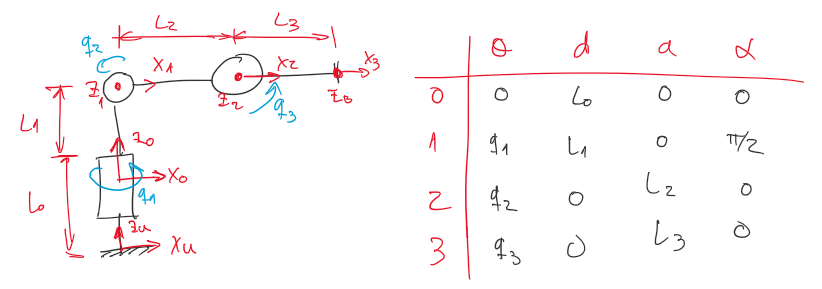 L2 L3
q2
X1 X2 X3
Z1 Z2 q3 Z3
L1
Z0
X0
q1
L0
Zu
Xu
θ d a α
0 0 L0 0 0
1 q1 L1 0 π/2
2 q2 0 L2 0
3 q3 0 L3 0